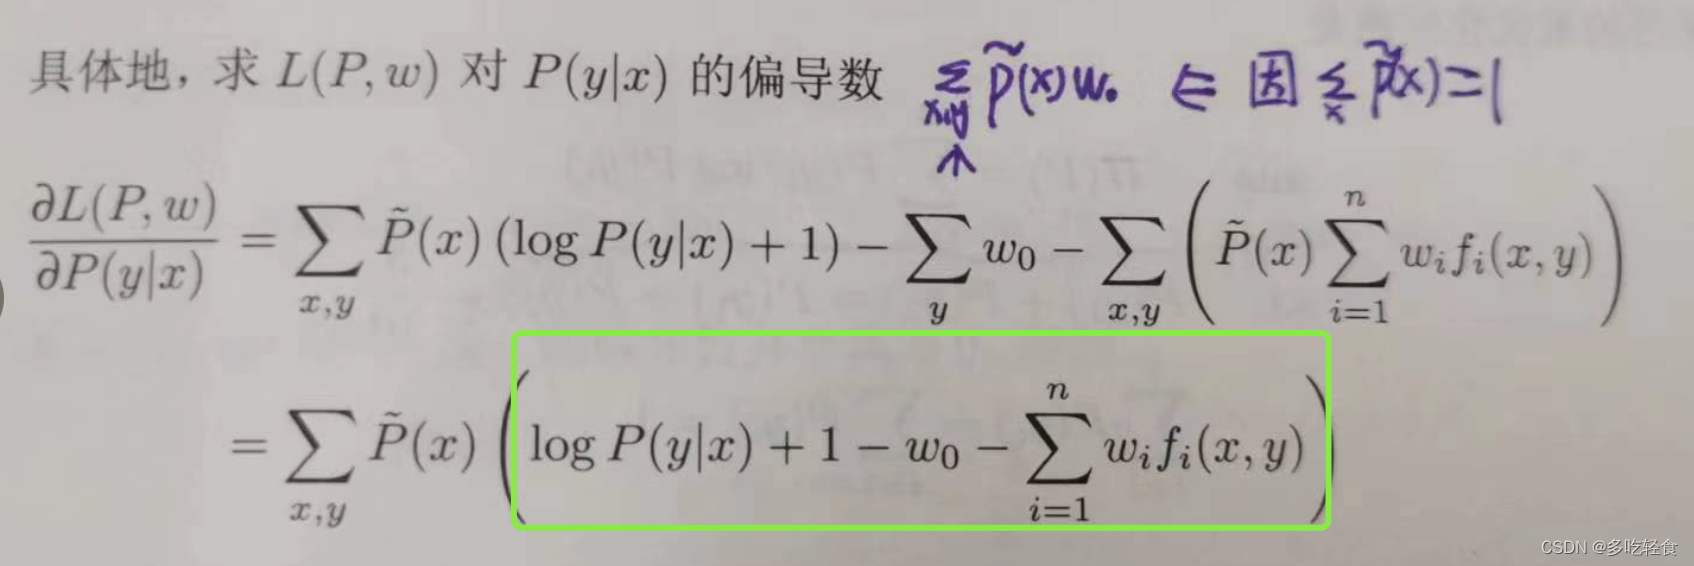 具体地，求 L(P, w) 对 P(y|x) 的偏导数 ∑_{x,y} P̃(x)w₀ ⇐ 因 ∑_x P̃(x)=1
↑
∂L(P, w)/∂P(y|x) = ∑_{x,y} P̃(x) (log P(y|x) + 1) − ∑_y w₀ − ∑_{x,y} ( P̃(x) ∑_{i=1}^{n} w_i f_i(x, y) )
= ∑_{x,y} P̃(x) ( log P(y|x) + 1 − w₀ − ∑_{i=1}^{n} w_i f_i(x, y) )
CSDN @多吃轻食